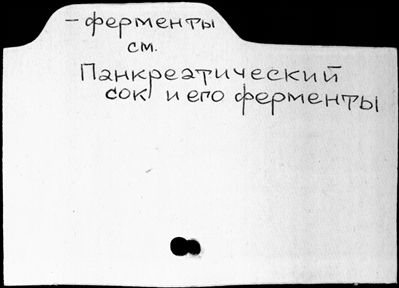 – ферменты
см.
Панкреатический
сок и его ферменты